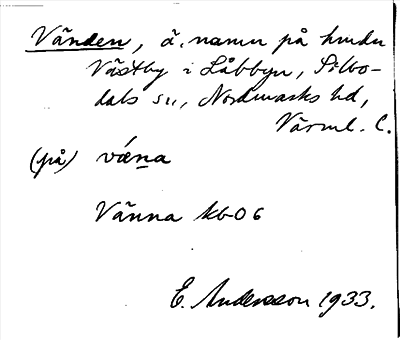 Vänden, ä. namn på
Västby i Låbbyn, Silbo-
dals sn, Nordmarks hd,
Värml. C.
(på) væ̀na
Vänna kb 06
E. Andersson 1933.